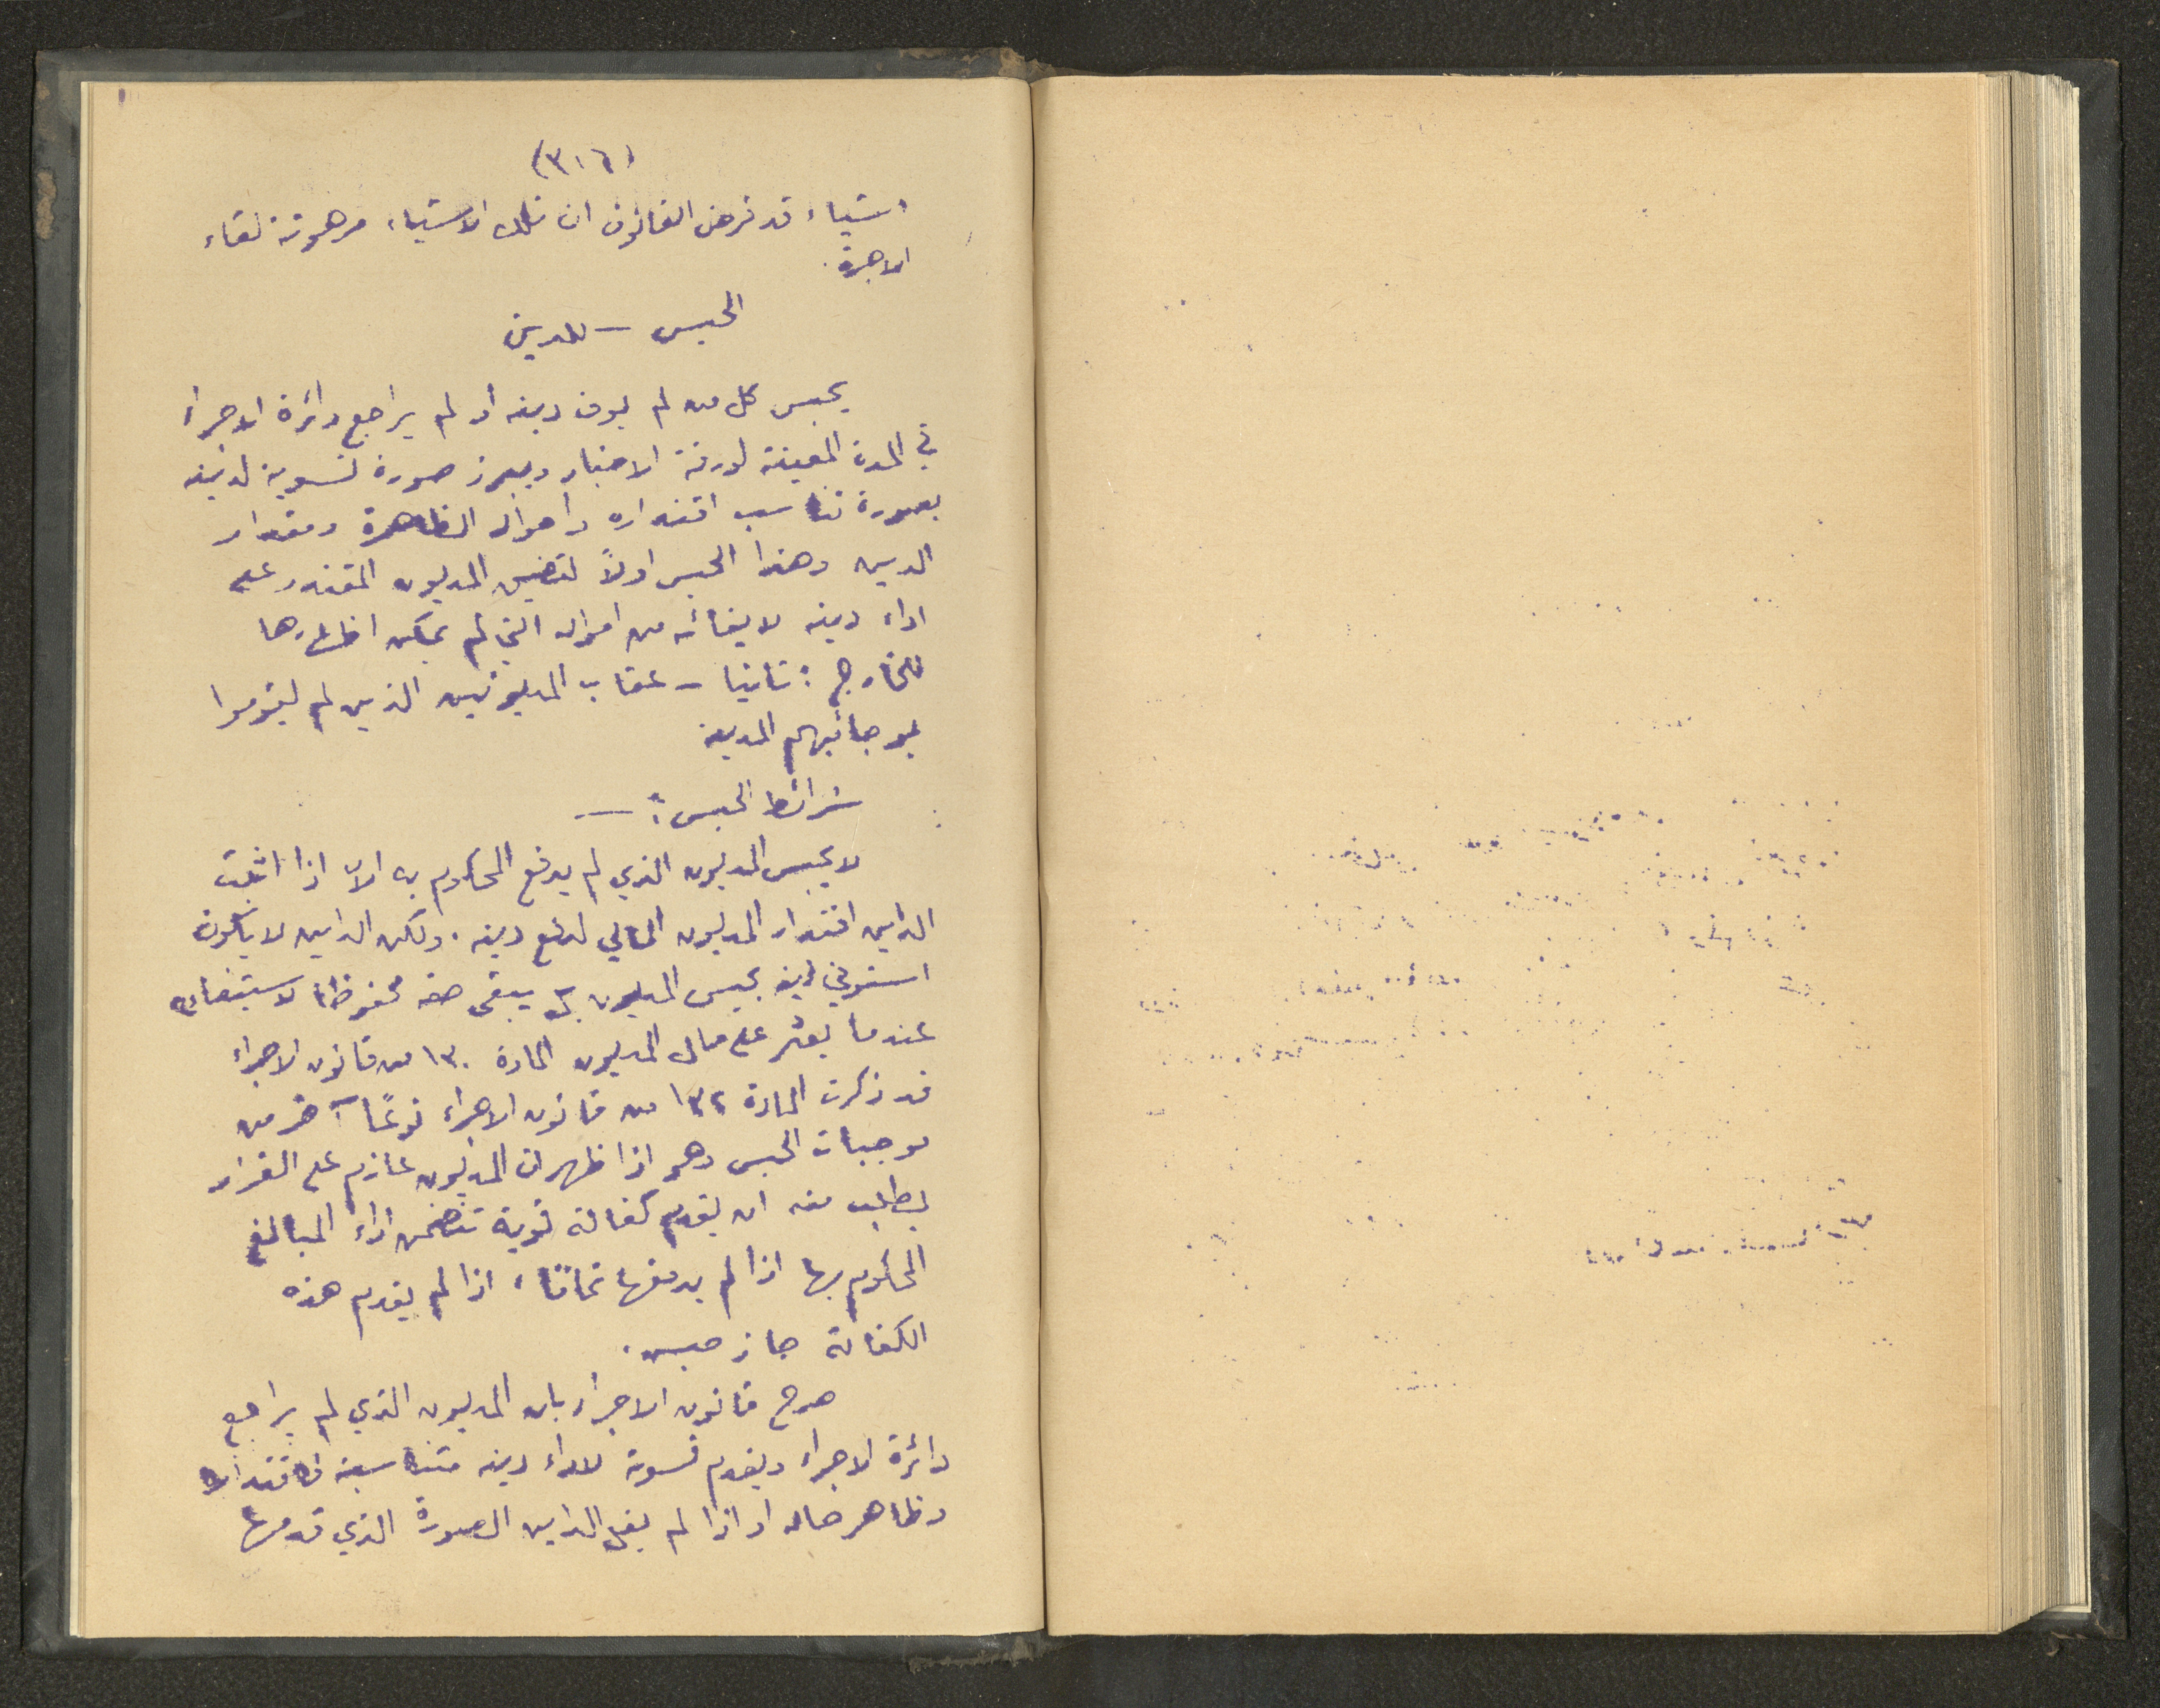 (٣١٦)
اشياء قد فرض القانون ان تلك الاشياء مرهونة لقاء
الاجرة.
الحبس — للدين
يحبس كل من لم يوف دينه أو لم يراجع دائرة الاجراء
في المدة المعينة لورقة الاخبار ويبرز صورة تسوية لدينه
بصورة تناسب اقتداره واحواله الظاهرة ومقدار
الدين وهذا الحبس اولاً لتضييق المديون المقتدر على
اداء دينه لايفائه من امواله التي لم يمكن اظهارها
للخارج : ثانيا – عقاب المديونين الذين لم يقوموا
بوجائبهم المدينة
شرائط الحبس : —
لا يحبس المديون الذي لم يدفع المحكوم به الا اذا اثبت
الداين اقتدار المديون المالي لدفع دينه . ولكن الداين لا يكون
استوفي دينه بحبس المديون بل يبقى حقه محفوظا لاستيفاءه
عندما يعثر على مال المديون المادة ١٣٠ من قانون الاجراء
قد ذكرت المادة ١٣٢ من قانون الاجراء نوعًا آخر من
موجبات الحبس وهو اذا ظهر ان المديون عازم على الفرار
يطلب منه ان يقدم كفالة قوية تتضمن اداء المبالغ
المحكوم بها اذا لم يدفعها تمامًا، اذا لم يقدم هذه
الكفالة جاز حبسه.
صرح قانون الاجراء بان المديون الذي لم يراجع
دائرة الاجراء ويقدم تسوية لاداء دينه متناسبة
وظاهر حاله او اذا لم يقبل الداين الصورة الذي قدمها